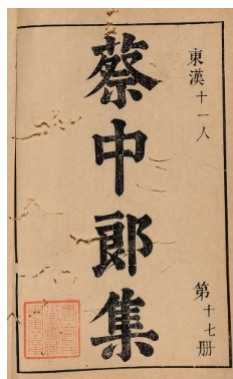 東漢十一人
第十七册
蔡中郎集